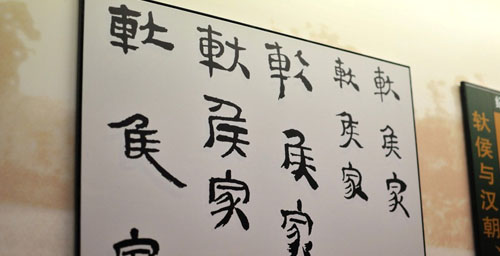 軑侯家
軑侯家
軑侯家
軑侯家
軑侯家
轪侯与汉朝